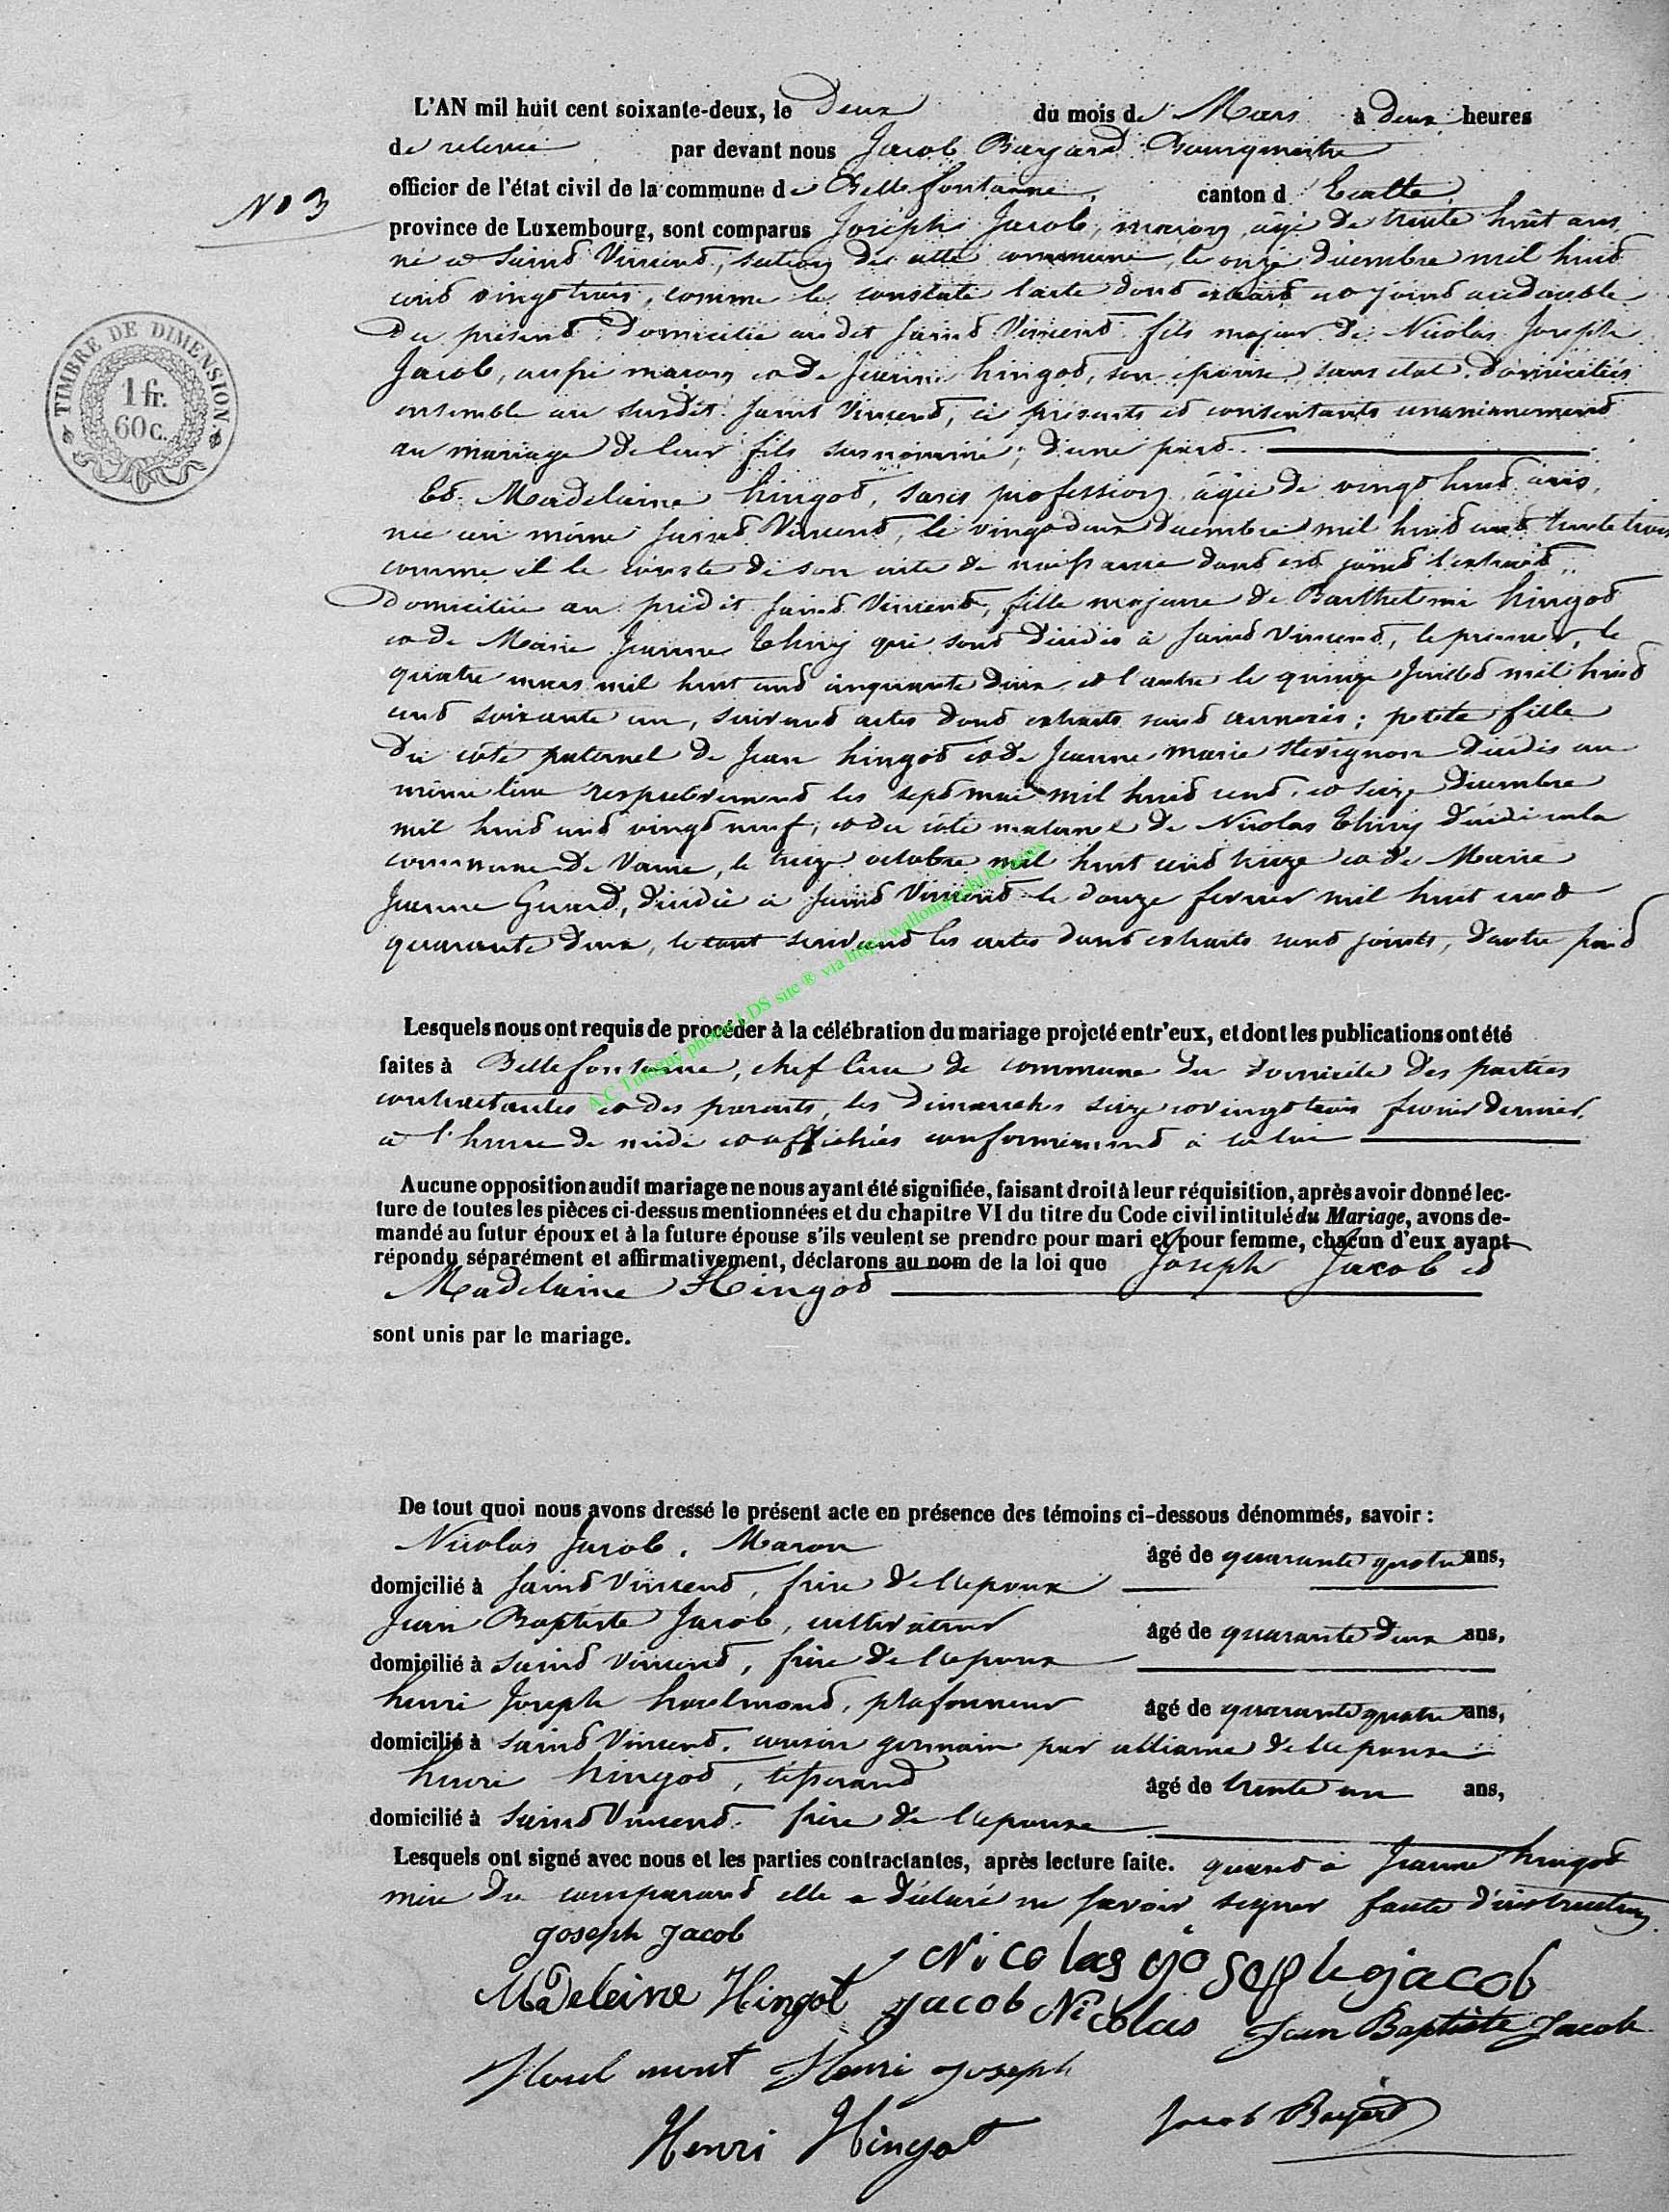 L'AN mil huit cent soixante-deux, le Deux du mois de Mars à deux heures
de relevée par devant nous Jacob Bayard Bourgmestre
officier de l'état civil de la commune de Bellefontaine, canton d'Etalle,
N° 3
province de Luxembourg, sont comparus Joseph Jacob, maçon, âgé de trente huit ans,
né à Saind Vincend, section de cette commune, le onze décembre mil huid
cend vingt trois, comme le constate l'acte dond extraid est joind au double
du présend, Domicilié au dit Saind Vincend fils majeur de Nicolas Joseph
Jacob, aussi maçon et de Jeanne hingod, son épouse, sans état, domiciliés
ensemble au susdit Saint Vincend, ci présents et consentants unanimemend
au mariage de leur fils susnommé; d'une pard.
TIMBRE DE DIMENSION
1 fr.
60 c.
Ed Madelaine hingod, sans profession, âgée de vingt huid ans,
née au même Saind Vincend, le vingt deux décembre mil huid cend trente trois
comme il le conste de son acte de naissance dond est joind l'extraid,
domiciliée au prédit Saind Vincend, fille majeure de Barthelmi hingod
et de Marie Jeanne Thiry qui sont décédés à Saind Vincend, le premier, le
quatre mars mil huit cend cinquante deux et l'autre le quinze Juillet mil huid
cend soixante un, suivand actes dond extraits sond annexés; petite fille
du côté paternel de Jean hingod et de Jeanne marie Stévignon décédés au
même lieu respectivemend les sept mai mil huid cend et seize Décembre
mil huid cend vingt neuf, et du côté maternel de Nicolas Thiry décédé en la
commune de Vance, le treize octobre mil huit cend treize et de Marie
Jeanne Gérard, décédée à Saind Vincend le douze fevrier mil huit cend
quarante deux, le tout suivand les actes dont extraits sont joints, d'autre pard
A.C Tintigny photos LDS site ® via http://wallonia.
Lesquels nous ont requis de procéder à la célébration du mariage projeté entr'eux, et dont les publications ont été
faites à Bellefontaine, chef lieu de commune du domicile des parties
contractantes et des parents, les dimanches seize et vingt trois fevrier dernier,
à l'heure de midi et affichées conformémend à la loi
Aucune opposition audit mariage ne nous ayant été signifiée, faisant droit à leur réquisition, après avoir donné lec-
ture de toutes les pièces ci-dessus mentionnées et du chapitre VI du titre du Code civil intitulé du Mariage, avons de-
mandé au futur époux et à la future épouse s'ils veulent se prendre pour mari et pour femme, chacun d'eux ayant
répondu séparément et affirmativement, déclarons au nom de la loi que Joseph Jacob et
Madelaine Hingod
sont unis par le mariage.
De tout quoi nous avons dressé le présent acte en présence des témoins ci-dessous dénommés, savoir :
Nicolas Jacob, Maçon âgé de quarante quatre ans,
domicilié à Saind Vincend, frère de l'époux
Jean Baptiste Jacob, cultivateur âgé de quarante deux ans,
domicilié à Saind Vincend, frère de l'époux
henri Joseph havelmond, plafonneur âgé de quarante quatre ans,
domicilié à Saind Vincend, cousin germain par alliance de l'épouse
henri hingod, tisserand âgé de trente un ans,
domicilié à Saind Vincend, frère de l'épouse
Lesquels ont signé avec nous et les parties contractantes, après lecture faite. quand à Jeanne hingod
mère du comparand elle a déclaré ne savoir signer faute d'instruction.
Joseph Jacob
Nicolas joseph jacob
Madeleine Hingot Jacob Nicolas Jean Baptiste Jacob
Henri Joseph
Henri Hingot Jacob Bayard